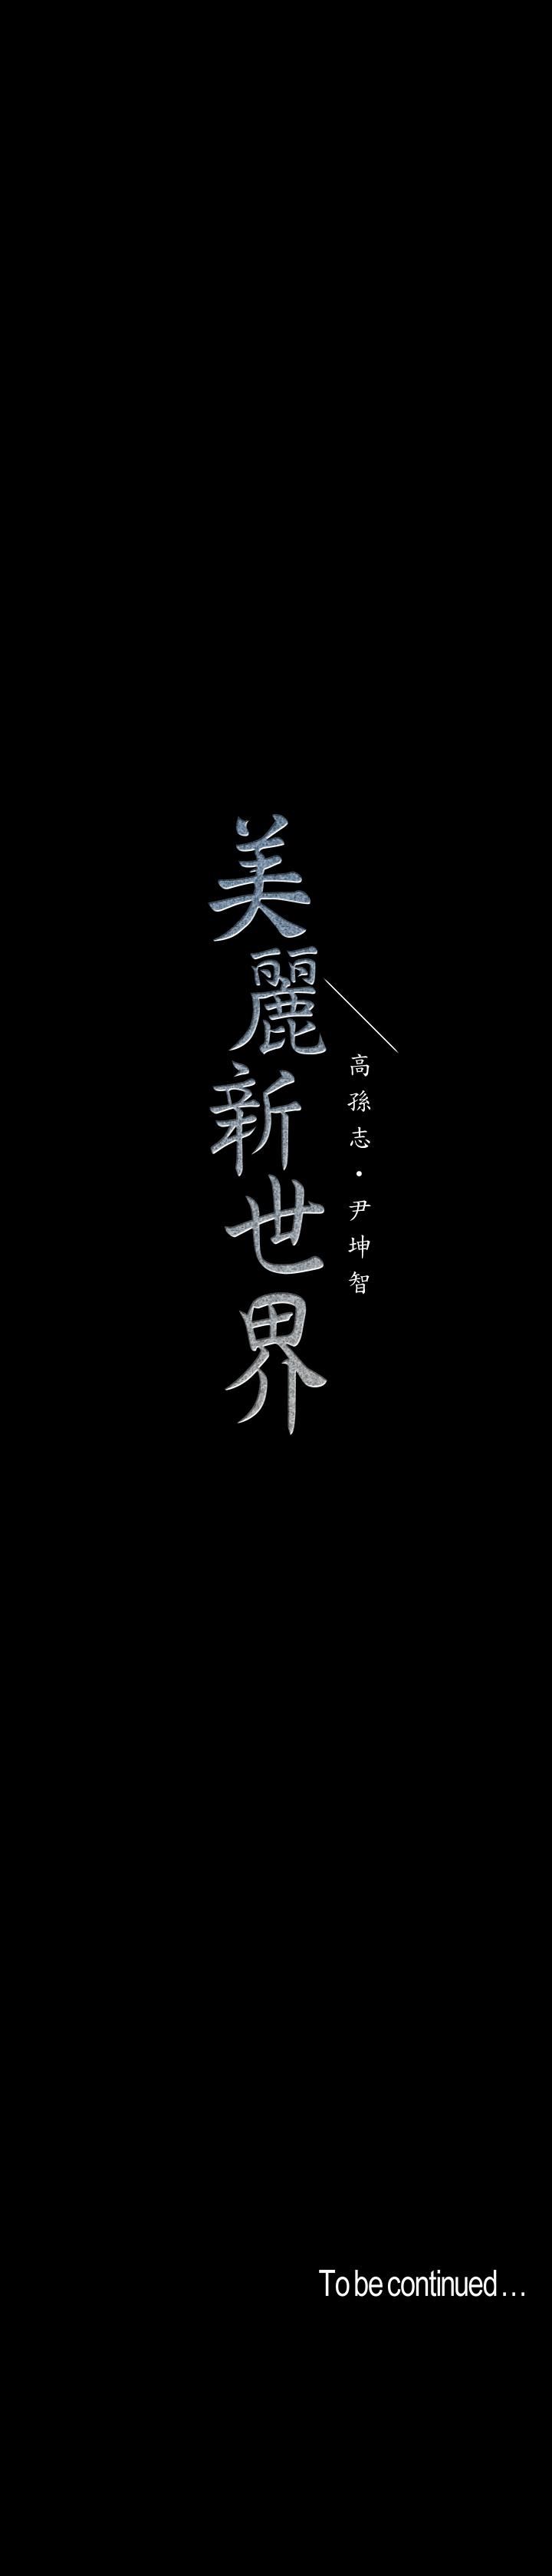 美麗新世界
高孫志・尹坤智
To be continued . . .